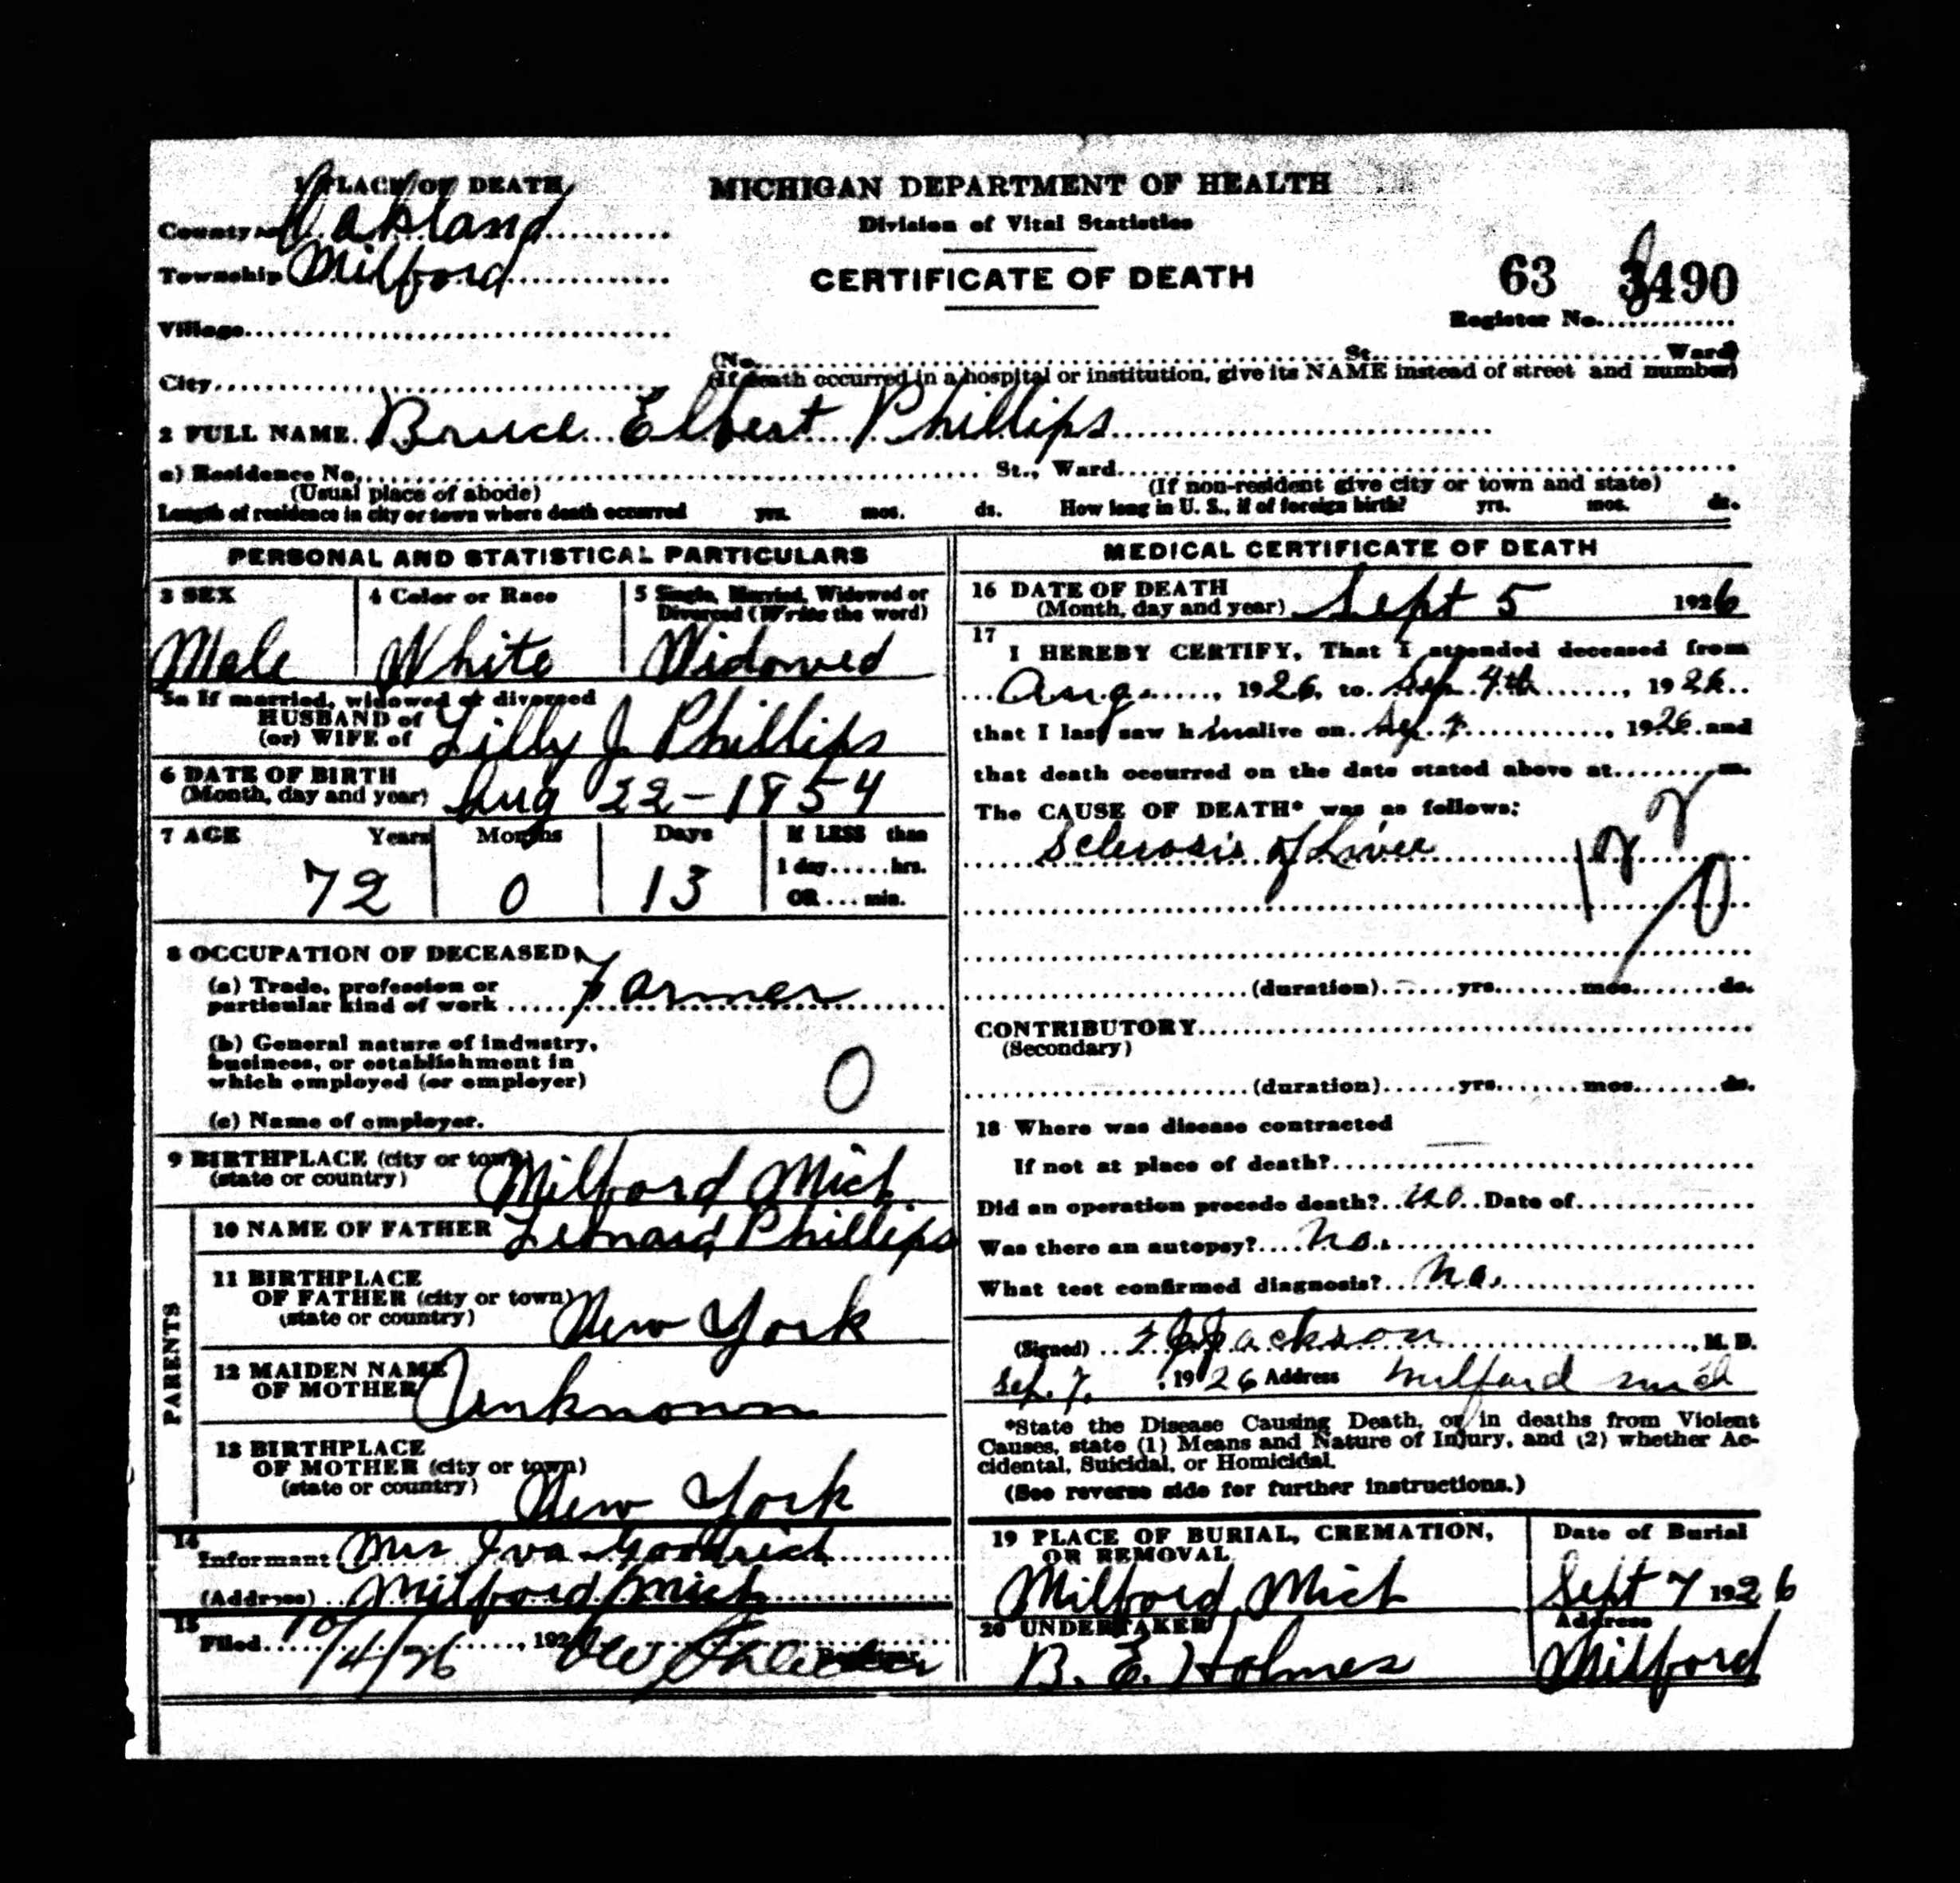 1 PLACE OF DEATH
County Oakland
Township Milford
Village
City
MICHIGAN DEPARTMENT OF HEALTH
Division of Vital Statistics
CERTIFICATE OF DEATH
63 3490
Register No.
(No. St. Ward)
(If death occurred in a hospital or institution, give its NAME instead of street and number)
2 FULL NAME. Bruce Elbert Phillips
a) Residence No. St., Ward.
(Usual place of abode) (If non-resident give city or town and state)
Length of residence in city or town where death occurred yrs. mos. ds. How long in U. S., if of foreign birth? yrs. mos. ds.
PERSONAL AND STATISTICAL PARTICULARS
3 SEX
Male
4 Color or Race
White
5 Single, Married, Widowed or
Divorced (Write the word)
Widowed
5a If married, widowed or divorced
HUSBAND of
(or) WIFE of Lilly J Phillips
6 DATE OF BIRTH
(Month, day and year) Aug 22-1854
7 AGE Years Months Days If LESS than
1 day......hrs.
OR....min.
72 0 13
8 OCCUPATION OF DECEASED
(a) Trade, profession or
particular kind of work Farmer
(b) General nature of industry,
business, or establishment in
which employed (or employer)
0
(c) Name of employer.
9 BIRTHPLACE (city or town)
(state or country) Milford Mich
PARENTS
10 NAME OF FATHER Leonard Phillips
11 BIRTHPLACE
OF FATHER (city or town)
(state or country) New York
12 MAIDEN NAME
OF MOTHER Unknown
13 BIRTHPLACE
OF MOTHER (city or town)
(state or country) New York
14
Informant Mrs Iva Goodrich
(Address) Milford Mich
15
Filed 10/4/26, 192
MEDICAL CERTIFICATE OF DEATH
16 DATE OF DEATH
(Month, day and year) Sept 5 1926
17
I HEREBY CERTIFY, That I attended deceased from
Aug., 1926, to Sep. 4th, 1926
that I last saw him alive on Sep. 4, 1926 and
that death occurred on the date stated above at m.
The CAUSE OF DEATH* was as follows:
Sclerosis of Liver
(duration) yrs. mos. ds.
CONTRIBUTORY
(Secondary)
(duration) yrs. mos. ds.
18 Where was disease contracted
If not at place of death?
Did an operation precede death? no Date of
Was there an autopsy? No.
What test confirmed diagnosis? No.
(Signed) Jackson, M. D.
Sep. 7. , 1926 Address Milford Mich
*State the Disease Causing Death, or in deaths from Violent
Causes, state (1) Means and Nature of Injury, and (2) whether Ac-
cidental, Suicidal, or Homicidal.
(See reverse side for further instructions.)
19 PLACE OF BURIAL, CREMATION,
OR REMOVAL
Milford Mich
Date of Burial
Sept 7 1926
20 UNDERTAKER
B. E. Holmes
Address
Milford